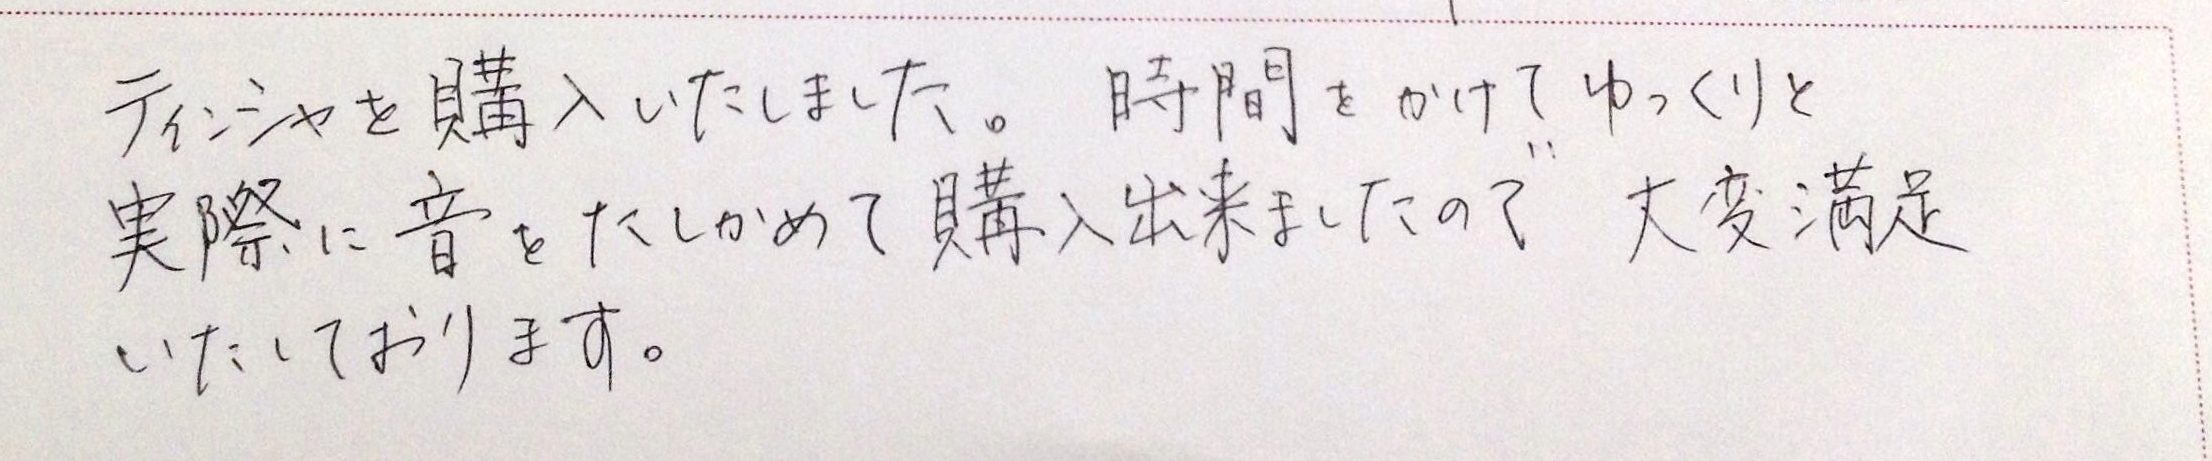 ティンシャを購入いたしました。 時間をかけてゆっくりと
実際に音をたしかめて購入出来ましたので 大変満足
いたしております。